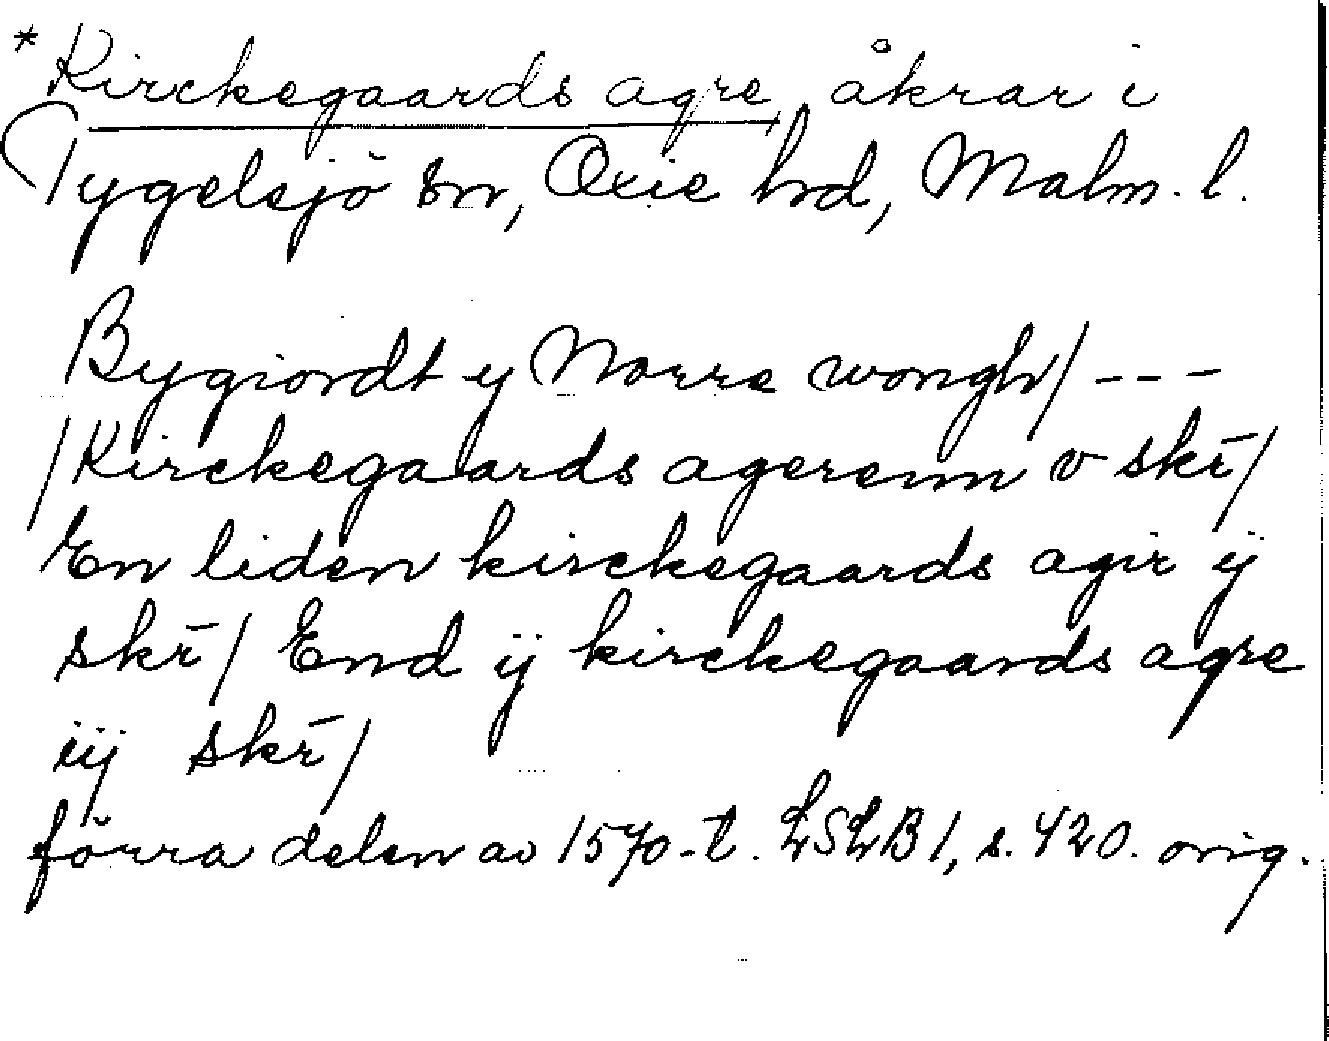 *Kirckegaards agre, åkrar i
Tygelsjö sn, Oxie hd, Malm. l.
Bygiordt y Norre wongh/ ---
/Kirckegaards agerenn v skr̄/
En liden kirckegaards agir ij
skr̄/ End ij kirckegaards agre
iij skr̄/
förra delen av 1570-t. LSLB 1, s. 420. orig.